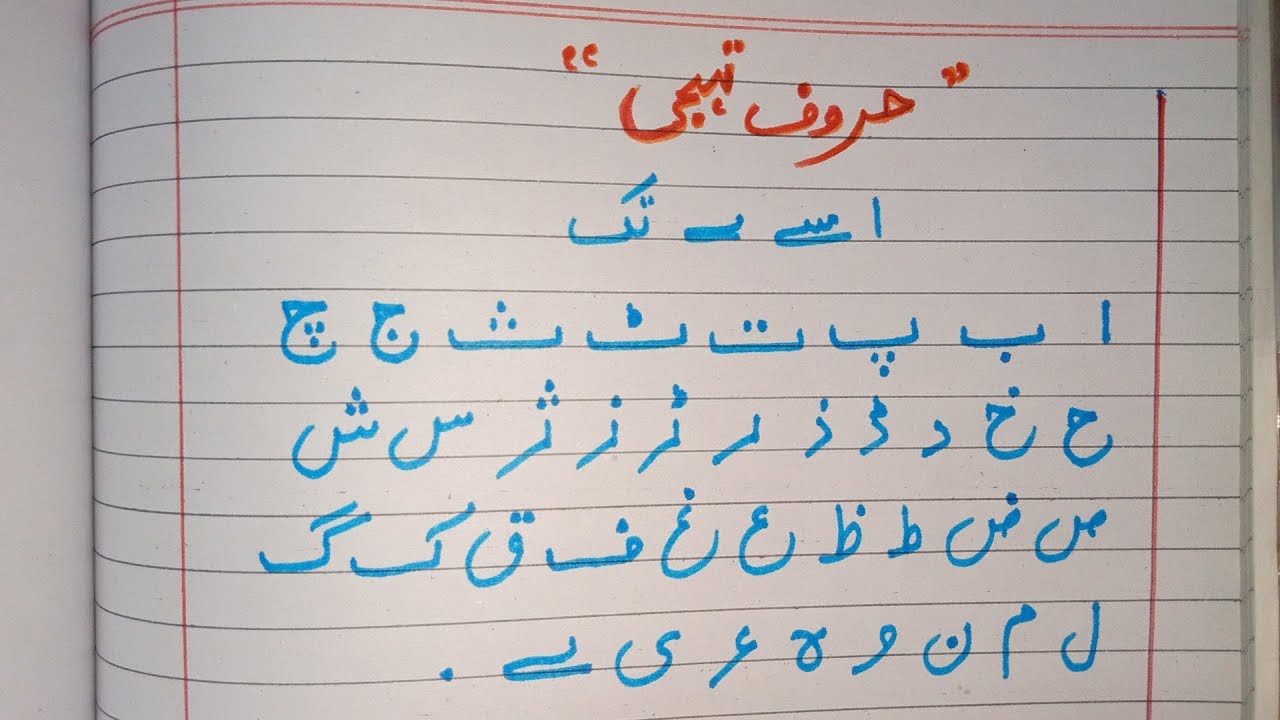 ”حروف تہجی“
ا سے ے تک
ا ب پ ت ٹ ث ج چ
ح خ د ڈ ذ ر ڑ ز ژ س ش
ص ض ط ظ ع غ ف ق ک گ
ل م ن و ہ ء ی ے .